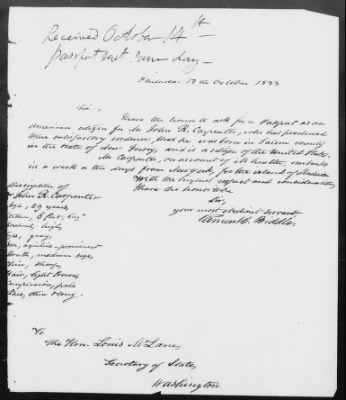 Received October 14th
passport sent same day—
Philada. 12th October 1833
Sir,
I have the honor to ask for a Passport as an
American citizen for Mr John R. Carpenter, who has produced
to me satisfactory evidence, that he was born in Salem county
in the State of New Jersey, and is a citizen of the United States.
Mr Carpenter, on account of ill health, embarks
in a week or ten days from New York, for the island of Madeira
With the highest respect and consideration
I have the honor to be
Sir,
your most obedient servant
Clement C. Biddle
Description of
John R. Carpenter
Age, 29 years
Stature, 5 feet,
Forehead, high
Eyes, gray
Nose, aquiline & prominent
Mouth, medium size
Chin, sharp
Hair, light brown
Complexion, pale
Face, thin & long.
To
The Hon. Louis McLane,
Secretary of State,
Washington